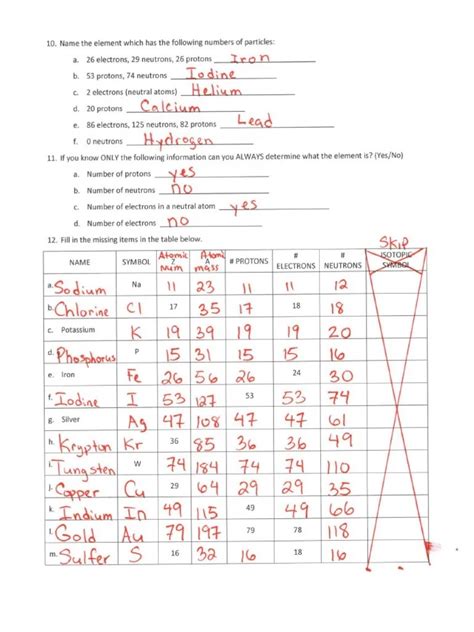 10. Name the element which has the following numbers of particles:
a. 26 electrons, 29 neutrons, 26 protons Iron
b. 53 protons, 74 neutrons Iodine
c. 2 electrons (neutral atoms) Helium
d. 20 protons Calcium
e. 86 electrons, 125 neutrons, 82 protons Lead
f. 0 neutrons Hydrogen
11. If you know ONLY the following information can you ALWAYS determine what the element is? (Yes/No)
a. Number of protons yes
b. Number of neutrons no
c. Number of electrons in a neutral atom yes
d. Number of electrons no
12. Fill in the missing items in the table below. Skip
NAME SYMBOL Atomic Z num Atomic A mass # PROTONS # ELECTRONS # NEUTRONS ISOTOPIC SYMBOL
a. Sodium Na 11 23 11 11 12
b. Chlorine Cl 17 35 17 18 18
c. Potassium K 19 39 19 19 20
d. Phosphorus P 15 31 15 15 16
e. Iron Fe 26 56 26 24 30
f. Iodine I 53 127 53 53 74
g. Silver Ag 47 108 47 47 61
h. Krypton Kr 36 85 36 36 49
i. Tungsten W 74 184 74 74 110
j. Copper Cu 29 64 29 29 35
k. Indium In 49 115 49 49 66
l. Gold Au 79 197 79 78 118
m. Sulfer S 16 32 16 18 16